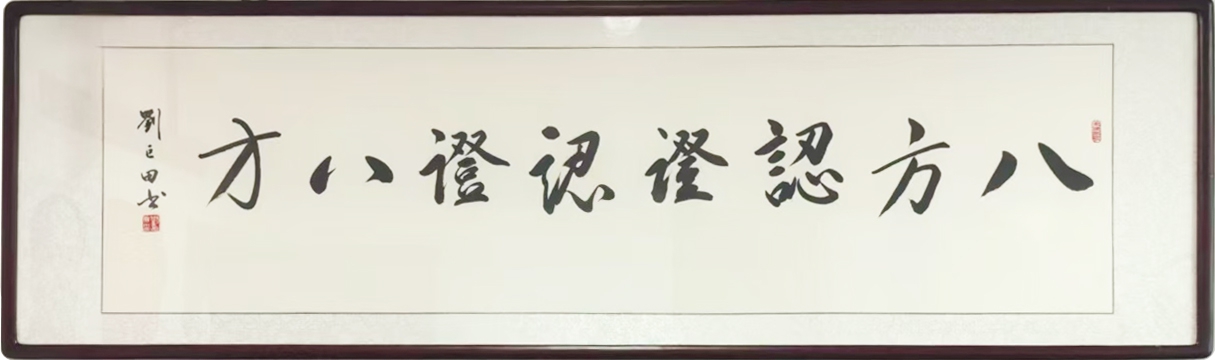 八方認證認證八方
劉巨田书